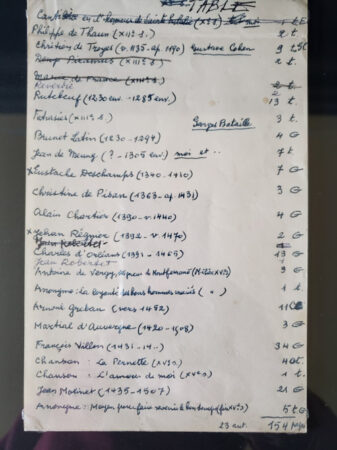 TABLE
Cantilène en l'honneur de Sainte Eulalie (X s.) 1 t G
Philippe de Thaun (XII s.) 2 t
Chrétien de Troyes (v. 1135-ap. 1190) Gustave Cohen 9
Marie de France (XII s.)
Rutebeuf (1230 env. - 1285 env.) 13 t
(XIII s.) Georges Bataille 3 t
Brunet Latin (1230-1294) 4 G
Jean de Meung (? - 1305 env) moi et 7 t
x Eustache Deschamps (1340-1410) 7 G
Christine de Pisan (1363-ap. 1431) 3 G
Alain Chartier (1390-v. 1440) 4 G
x Jehan Régnier (1392-v. 1470) 2 G
Charles d'Orléans (1391-1465) 13 G
Jean Robertet 1
Antoine de Vergy, 3 G
Anonyme : la légende des bons hommes 1 t
Arnoul Greban (vers 1452) 11
Martial d'Auvergne (1420-1508) 3 G
François Villon (1431-14..) 34 G
Chanson : La Pernette (XV s.) t.
Chanson : L'amour de moi (XV s.) 1 t.
Jean Molinet (1435-1507) 21 G
Anonyme : Moyen pour faire 5 t G
23 aut. 154